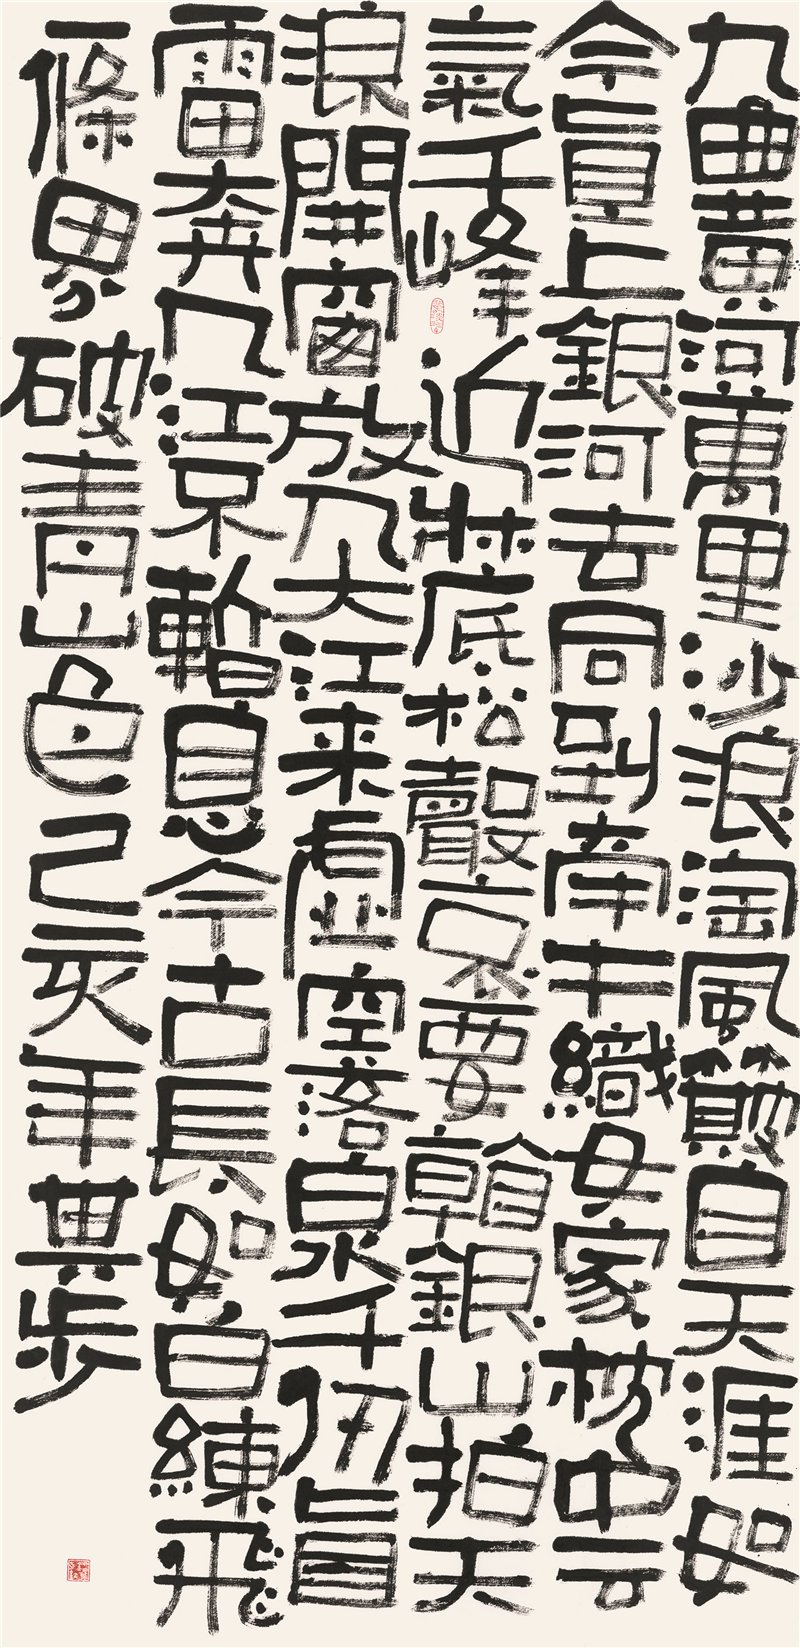 九曲黄河萬里沙浪淘風簸自天涯如
今直上銀河去同到牽牛織女家枕中云
氣千峰近牀底松聲哀要看銀山拍天
浪開窗放入大江来虚空落泉千仞直
雷奔入江不暫息今古長如白練飛
一條界破青山色己亥年步